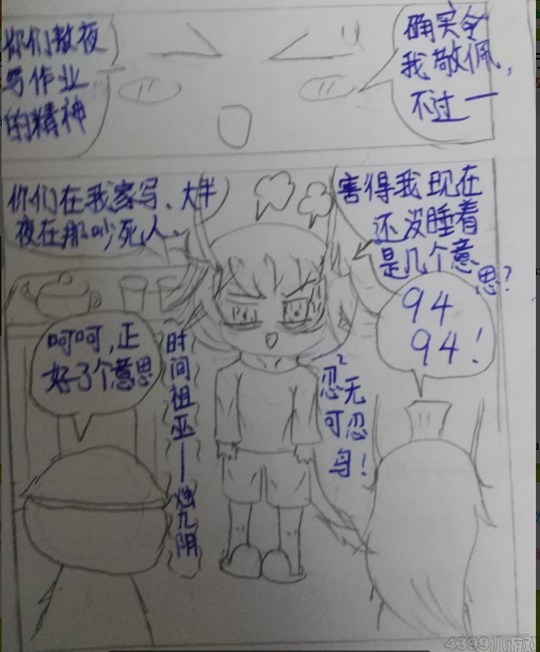 你们敖夜
写作业
的精神
确实令
我敬佩，
不过一
你们在我家写、大半
夜在那吵死人、
害得我现在
还没睡着
是几个意思？
94
94！
呵呵，正
好了个意思
时间祖巫——烛九阴
忍无可忍
2
鸟！
4399小游戏